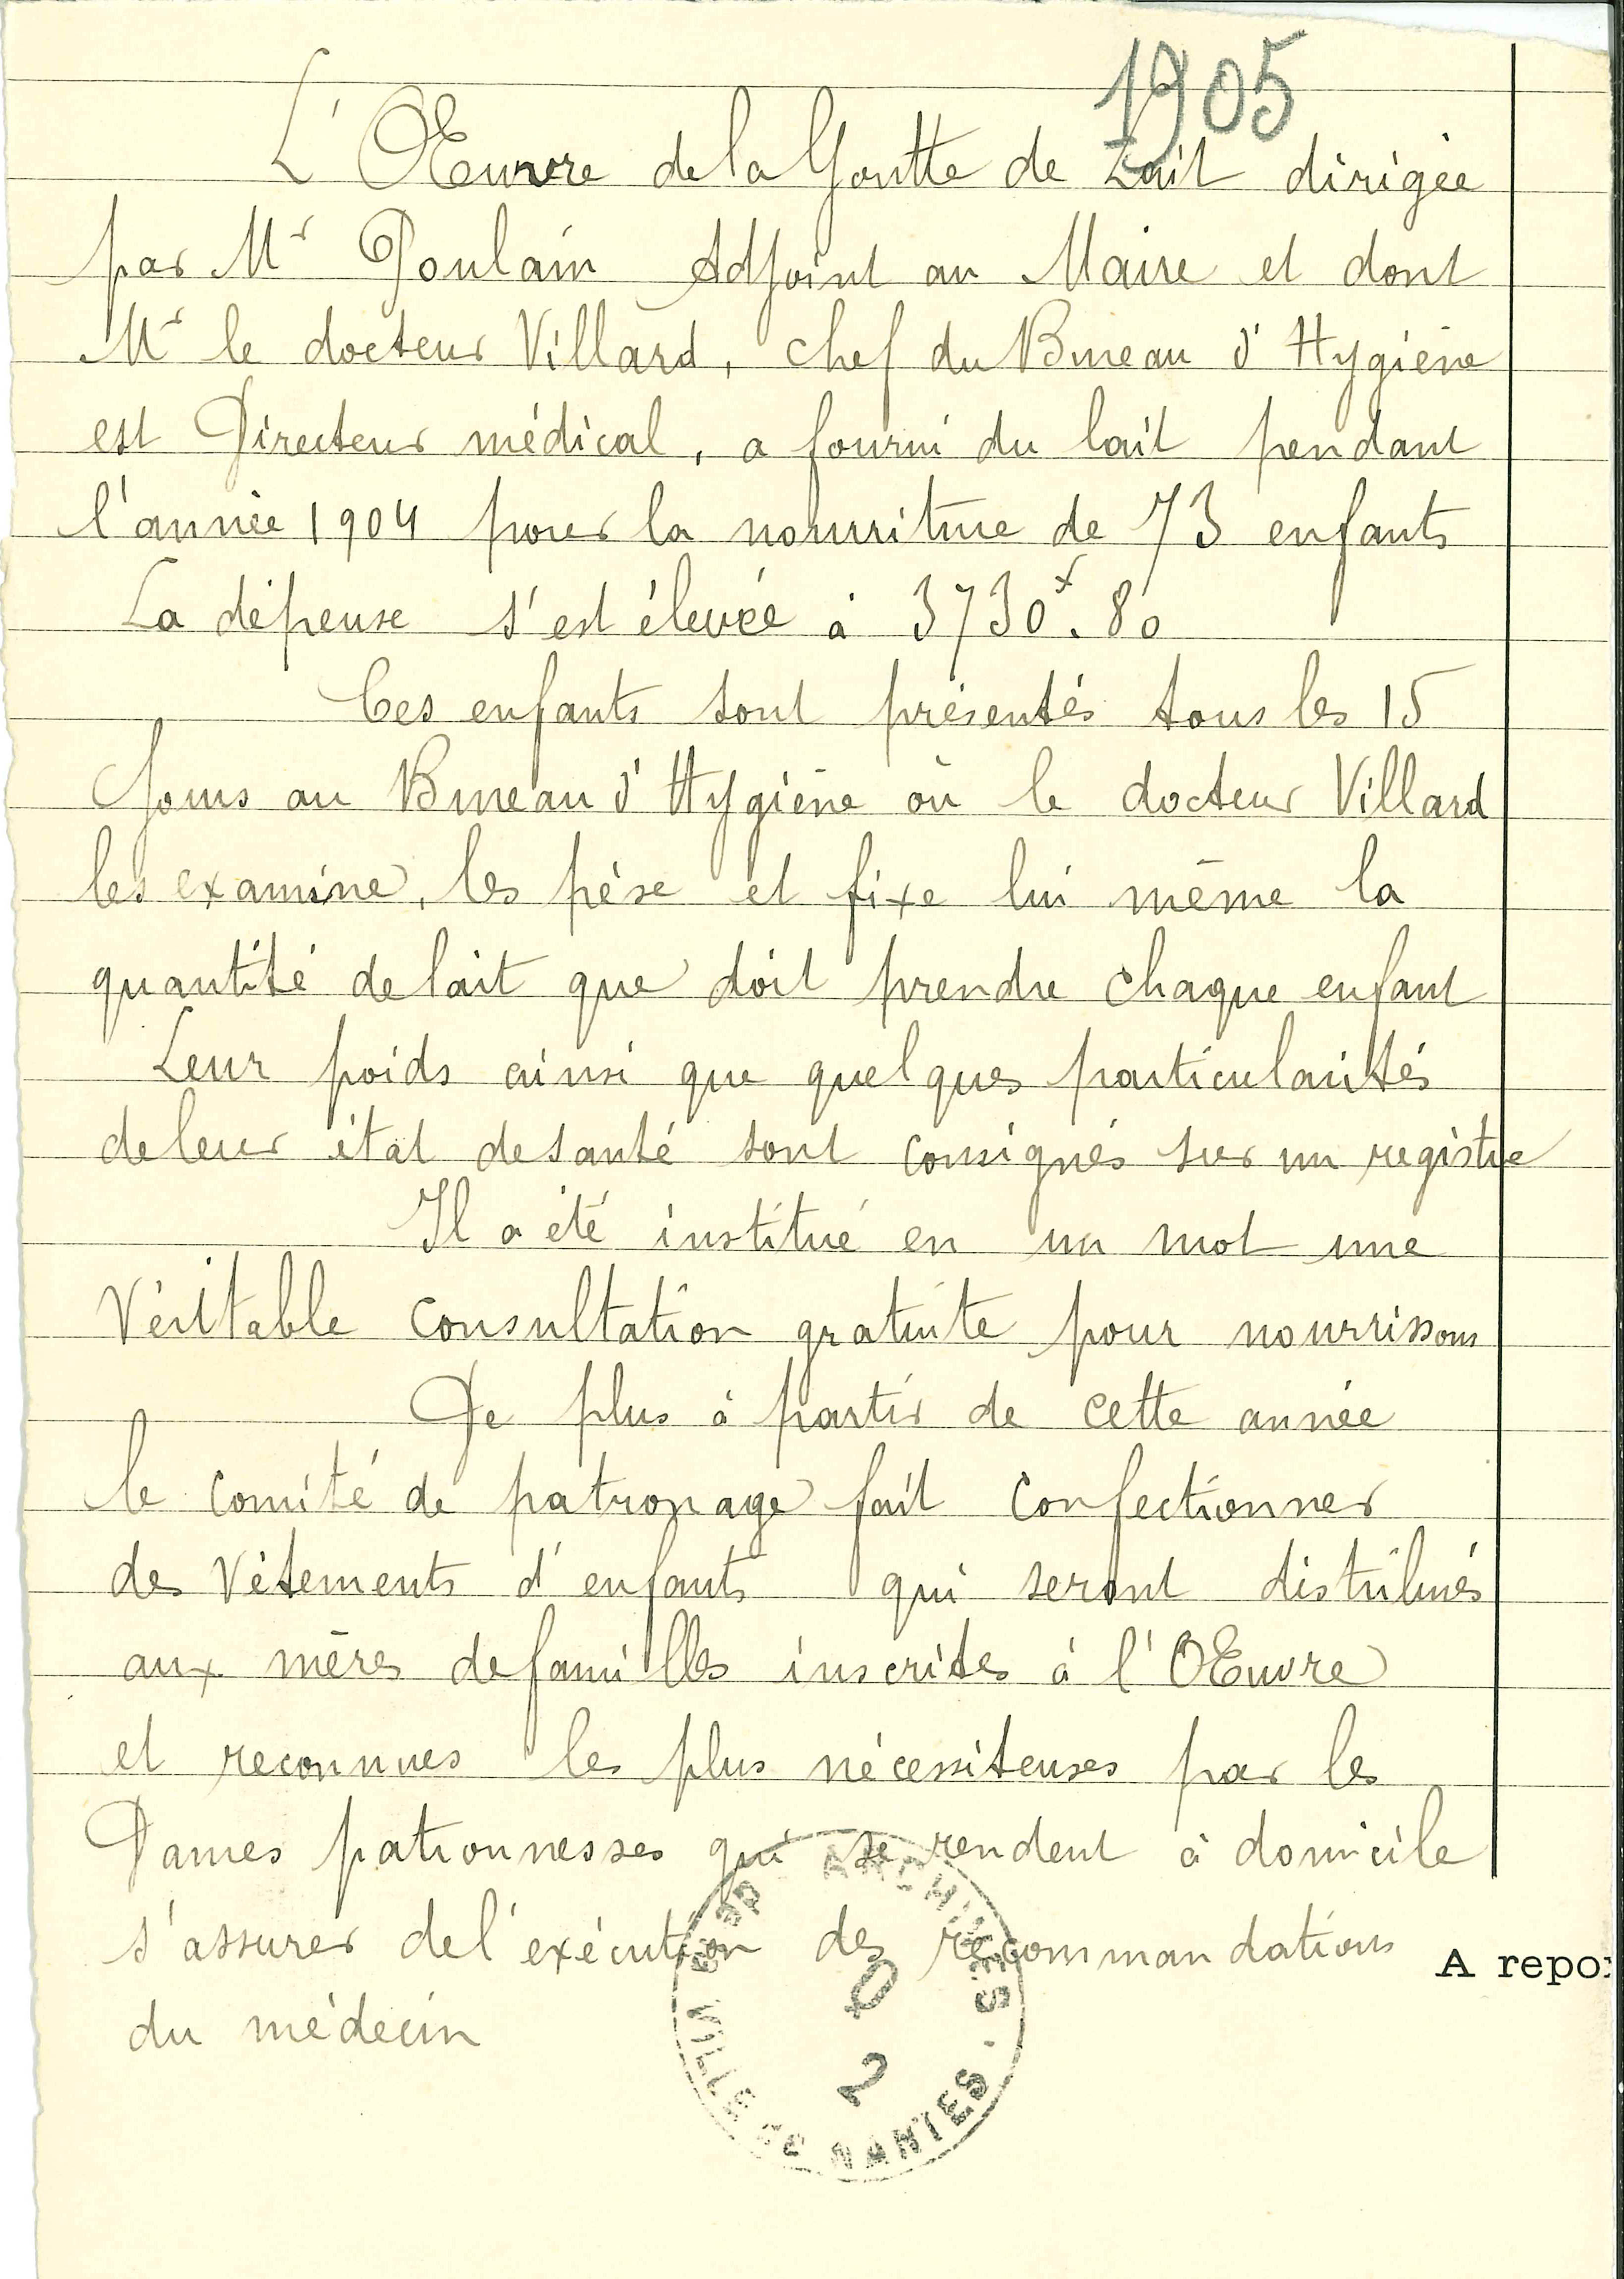 1905
L'Œuvre de la Goutte de Lait dirigée
par Mr Poulain Adjoint au Maire et dont
Mr le docteur Villard, chef du Bureau d'Hygiène
est Directeur médical, a fourni du lait pendant
l'année 1904 pour la nourriture de 73 enfants
La dépense s'est élevée à 3730f.80
Ces enfants sont présentés tous les 15
jours au Bureau d'Hygiène où le docteur Villard
les examine, les pèse et fixe lui même la
quantité de lait que doit prendre chaque enfant
Leur poids ainsi que quelques particularités
de leur état de santé sont consignés sur un registre
Il a été institué en un mot une
Véritable consultation gratuite pour nourrissons
De plus à partir de cette année
le comité de patronage fait confectionner
des Vêtements d'enfants qui seront distribués
aux mères de familles inscrites à l'Œuvre
et reconnues les plus nécessiteuses par les
Dames patronnesses qui se rendent à domicile
s'assurer de l'exécution des recommandations
du médecin
A repor
ARCHIVES
VILLE DE NANTES